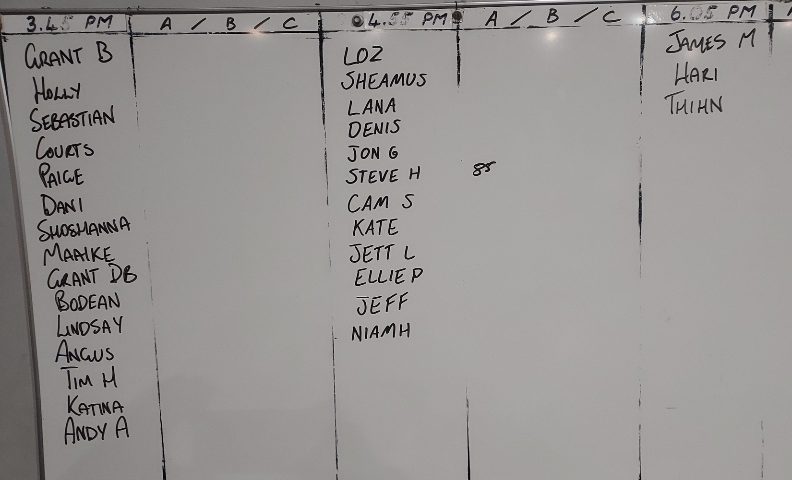 3.45 PM
A / B / C
GRANT B
HOLLY
SEBASTIAN
COURTS
PAIGE
DANI
SHOSHANNA
MAAIKE
GRANT DB
BODEAN
LINDSAY
ANGUS
TIM H
KATINA
ANDY A
4.55 PM
A / B / C
LOZ
SHEAMUS
LANA
DENIS
JON G
STEVE H 85
CAM S
KATE
JETT L
ELLIE P
JEFF
NIAMH
6.05 PM
JAMES M
HARI
THIHN